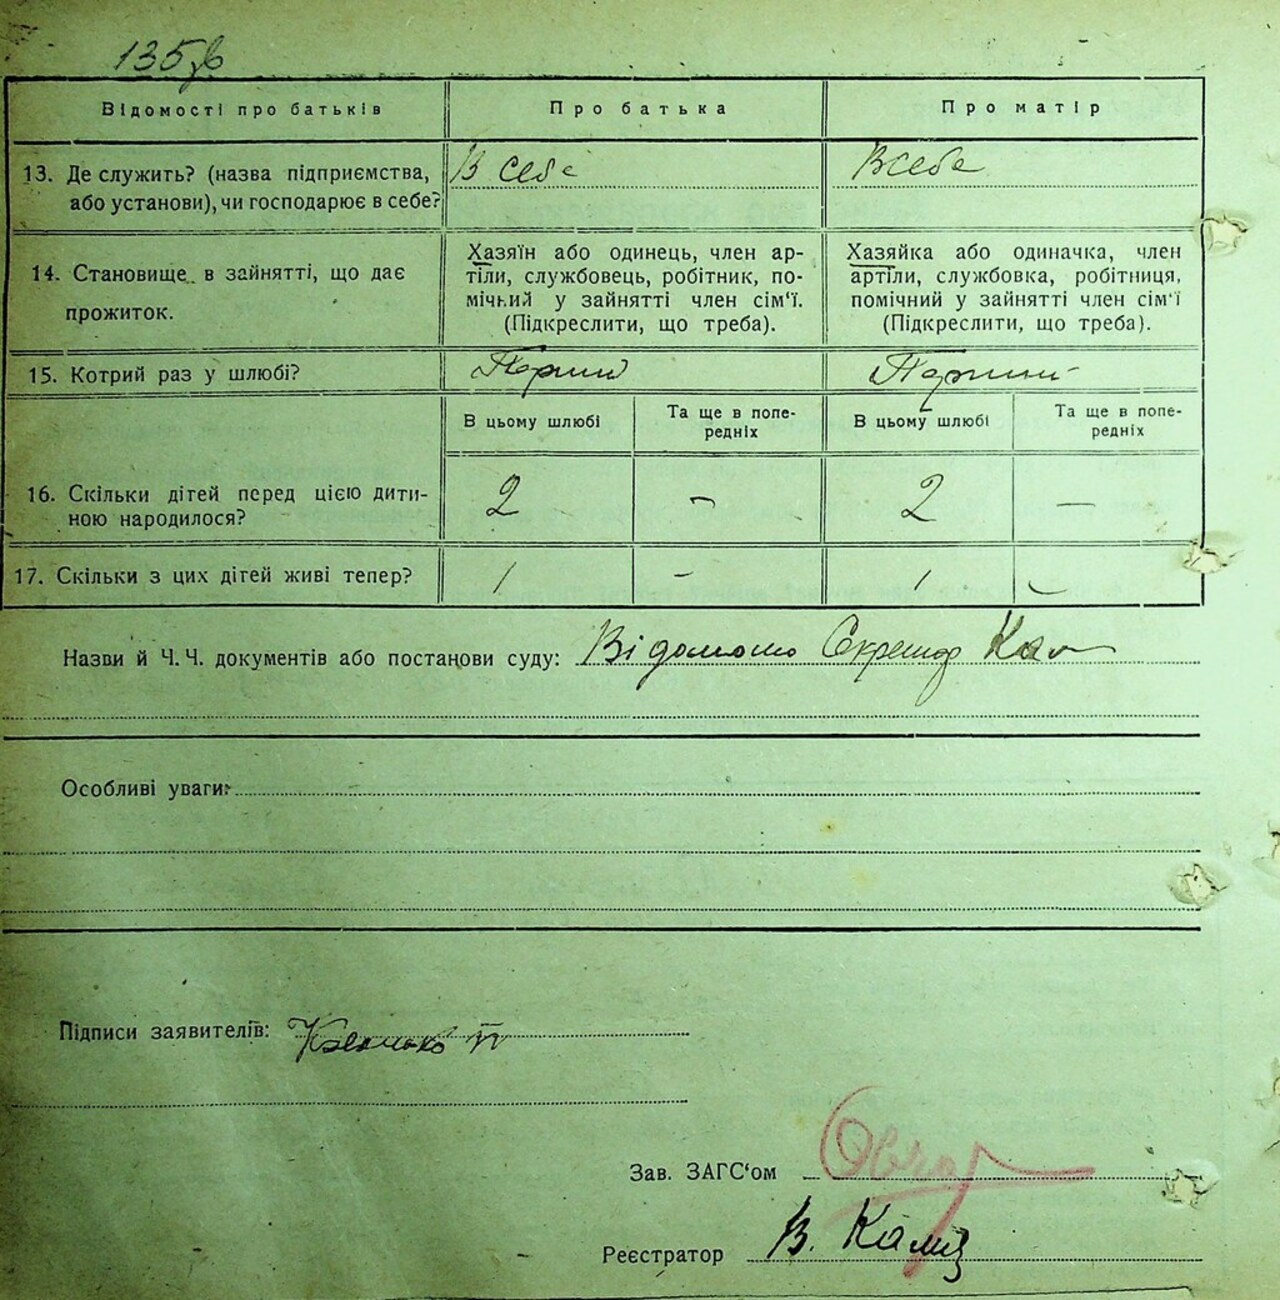 135
Відомості про батьків Про батька Про матір
13. Де служить? (назва підприємства, В себе В себе
або установи), чи господарює в себе?
14. Становище в зайнятті, що дає
прожиток.
Хазяїн або одинець, член ар-
тіли, службовець, робітник, по-
мічний у зайнятті член сім'ї.
(Підкреслити, що треба).
Хазяйка або одиначка, член
артіли, службовка, робітниця,
помічний у зайнятті член сім'ї
(Підкреслити, що треба).
15. Котрий раз у шлюбі? Перший Перший
В цьому шлюбі Та ще в попе-
редніх
В цьому шлюбі Та ще в попе-
редніх
16. Скільки дітей перед цією дити- 2 — 2 —
ною народилося?
17. Скільки з цих дітей живі тепер? 1 — 1 —
Назви й Ч. Ч. документів або постанови суду: Відомо Секретар
Особливі уваги:
Підписи заявителів:
Зав. ЗАГС'ом
Реєстратор В.